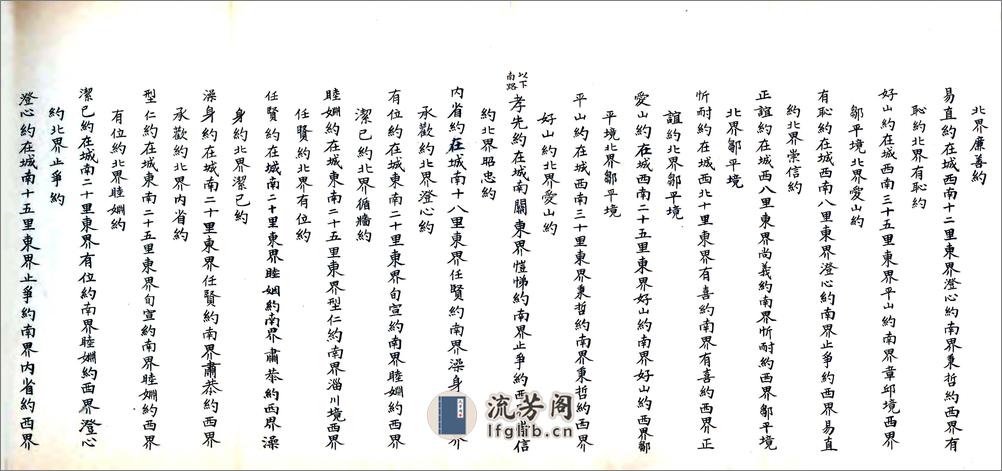 北界廉善約
易直約在城西南十二里東界澄心約南界秉哲約西界有
恥約北界有恥約
好山約在城西南三十五里東界平山約南界章邱境西界
鄒平境北界愛山約
有恥約在城西南八里東界澄心約南界止爭約西界易直
約北界崇信約
正誼約在城西八里東界尚義約南界忻耐約西界鄒平境
北界鄒平境
忻耐約在城西北十里東界有喜約南界有喜約西界正
誼約北界鄒平境
愛山約在城西南二十五里東界好山約南界好山約西界鄒
平境北界鄒平境
平山約在城西南三十里東界秉哲約南界東哲約西界
好山約北界愛山約
以下南路
孝先約在城南關東界愷悌約南界止爭約西信
約北界昭忠約
內省約在城南十八里東界任賢約南界澡身界
承歡約北界澄心約
有位約在城東南二十里東界旬宣約南界睦婣約西界
潔己約北界循牆約
睦婣約在城東南二十五里東界型仁約南界淄川境西界
任賢約北界有位約
任賢約在城南二十里東界睦姻約南界肅恭約西界澡
身約北界潔己約
澡身約在城南二十里東界任賢約南界肅恭約西界
承歡約北界內省約
型仁約在城東南二十五里東界旬宣約南界睦婣約西界
有位約北界睦婣約
潔己約在城南二十里東界有位約南界睦婣約西界澄心
約北界止爭約
澄心約在城南十五里東界止爭約南界內省約西界
流芳阁
lfglib.cn